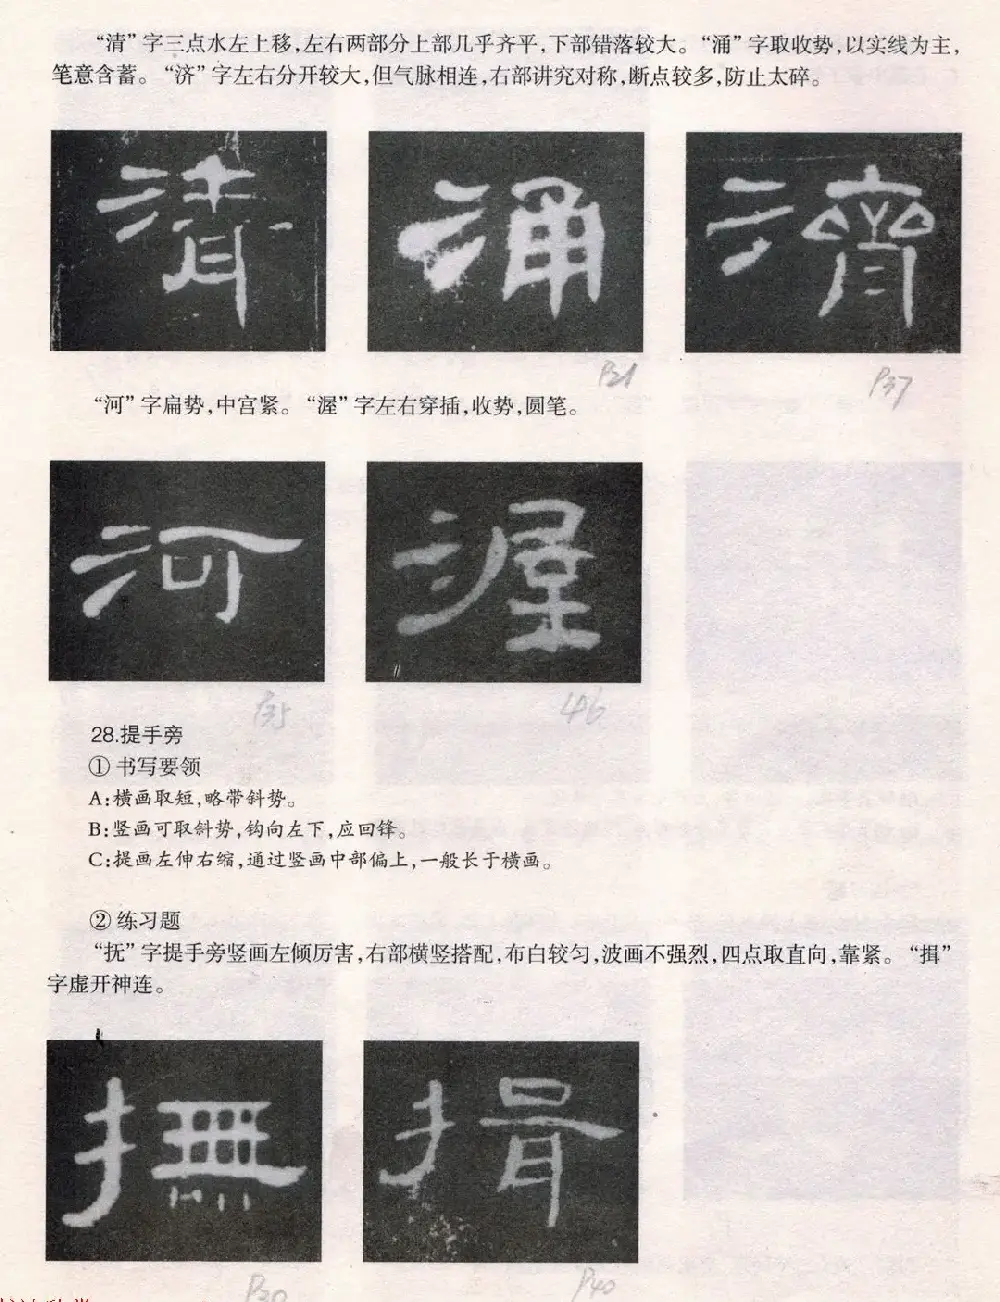 “清”字三点水左上移,左右两部分上部几乎齐平,下部错落较大。“涌”字取收势,以实线为主,
笔意含蓄。“济”字左右分开较大,但气脉相连,右部讲究对称,断点较多,防止太碎。
清 涌 濟
P21 P37
“河”字扁势,中宫紧。“渥”字左右穿插,收势,圆笔。
河 渥
P35 46
28.提手旁
①书写要领
A:横画取短,略带斜势。
B:竖画可取斜势,钩向左下,应回锋。
C:提画左伸右缩,通过竖画中部偏上,一般长于横画。
②练习题
“抚”字提手旁竖画左倾厉害,右部横竖搭配,布白较匀,波画不强烈,四点取直向,靠紧。“揖”
字虚开神连。
撫 揖
P30 P40